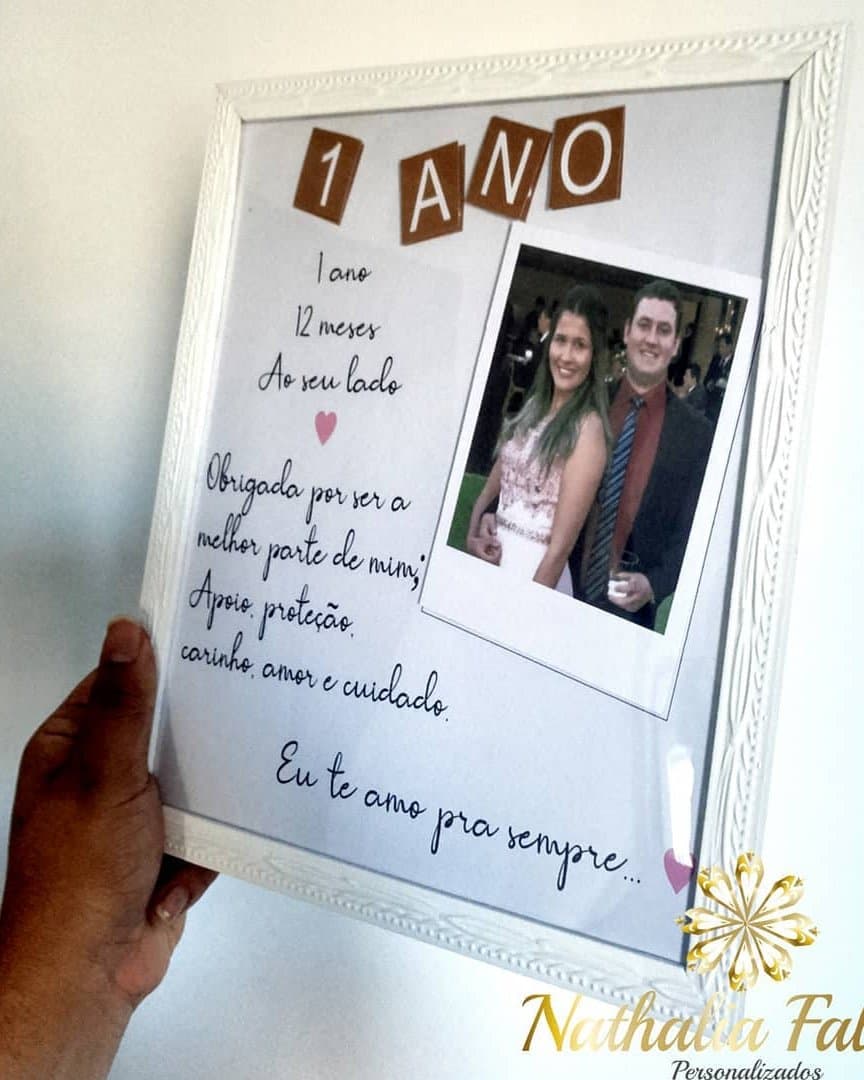 1 ANO
1 ano
12 meses
Ao seu lado
Obrigada por ser a
melhor parte de mim;
Apoio, proteção,
carinho, amor e cuidado.
Eu te amo pra sempre...
Nathalia Fal
Personalizados